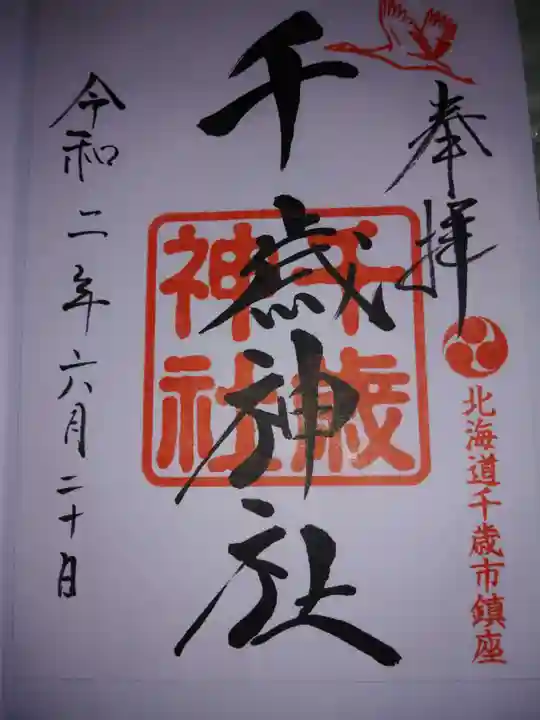 奉拝
北海道千歳市鎮座
千歳神社
千歳
神社
令和二年六月二十日